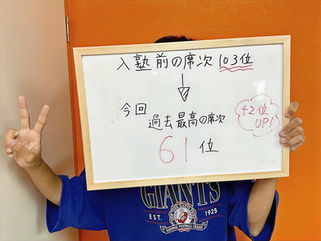 入塾前の席次 103位
↓
今回
過去最高の席次
61位
42位
UP!
GIANTS
EST. 1925